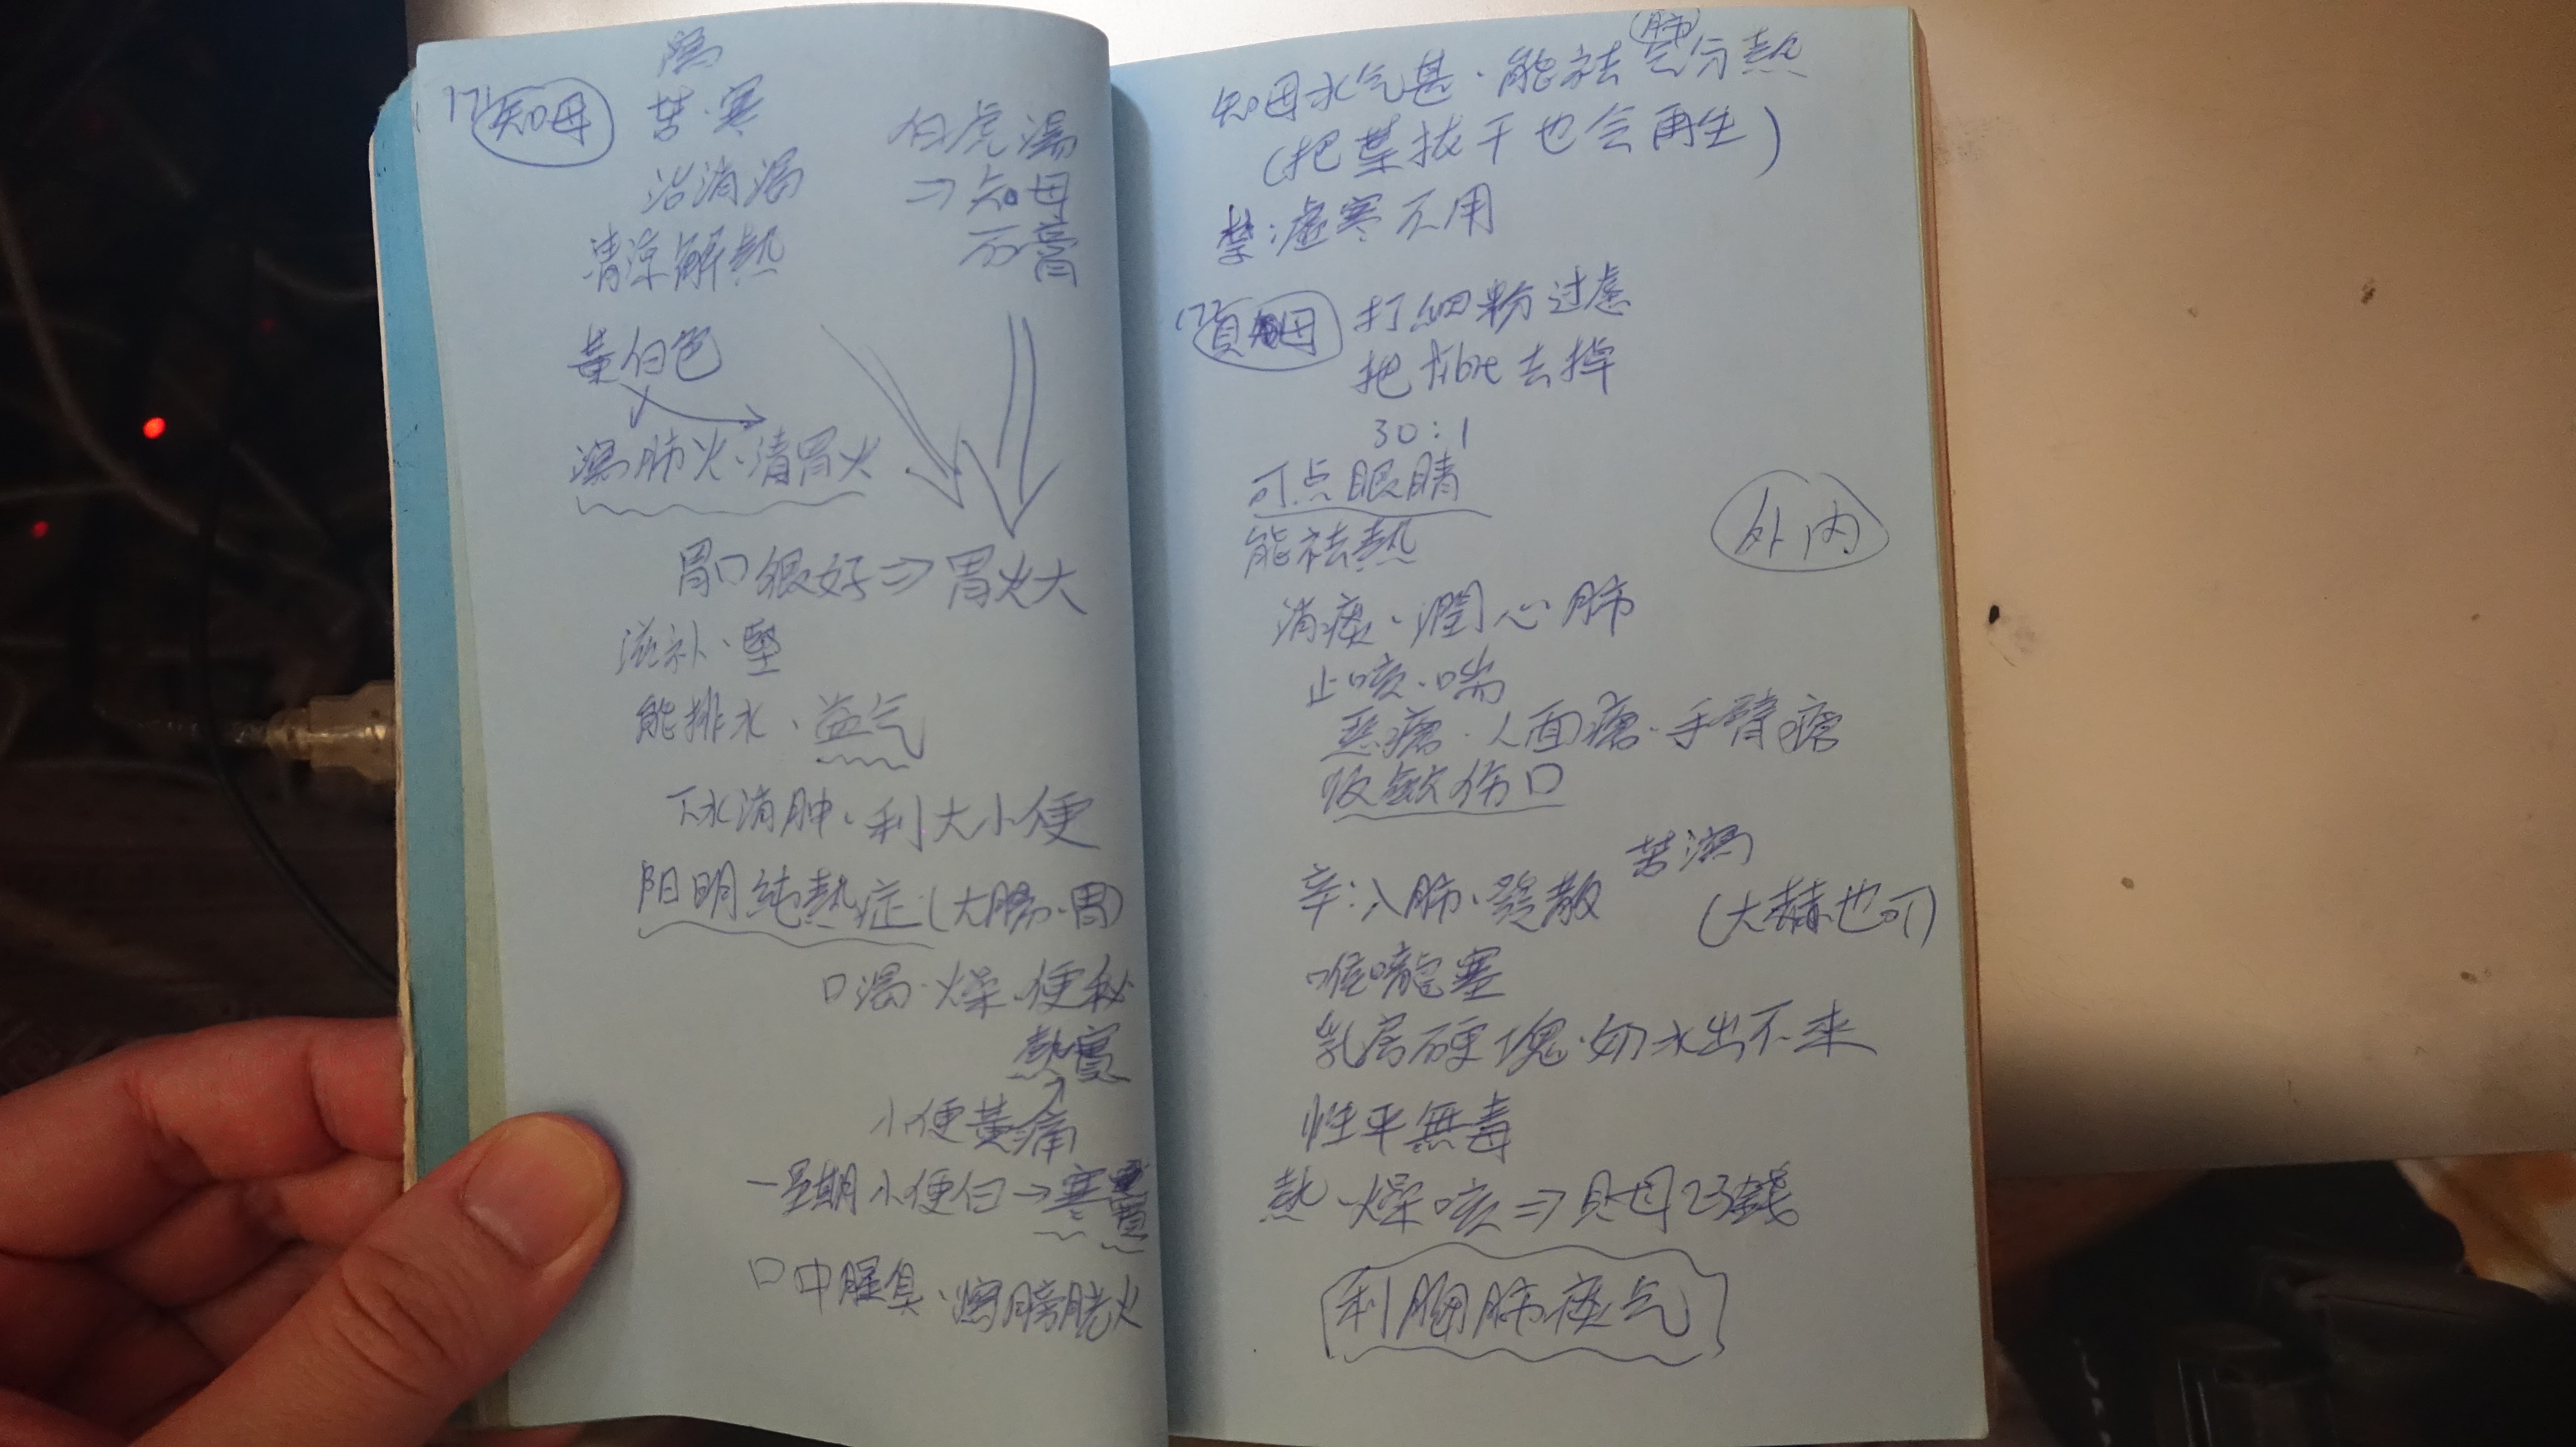 171 知母
瀉
苦、寒
治消渴
清涼解熱
白虎湯
⇒知母
石膏
黃白色
瀉肺火、清胃火
胃口很好⇒胃火大
滋补、堅
能排水、益气
下水消肿、利大小便
阳明純熱症(大腸、胃)
口渴、燥、便秘
熱實
小便黃痛
一星期小便白→寒實
口中腥臭、瀉膀胱火
知母水气甚、能祛(肺)气分熱
(把葉拔干也会再生)
禁:虛寒不用
172 貝母
打細粉过濾
把fibre去掉
30:1
可点眼睛
能祛熱
外內
消痰、潤心肺
止咳、喘
惡瘡、人面瘡、手臂瘡
收斂伤口
辛:入肺、發散
苦瀉
(大赫也可)
喉嚨塞
乳房硬塊、奶水出不来
性平無毒
熱、燥咳⇒貝母23錢
利胸肺痰气